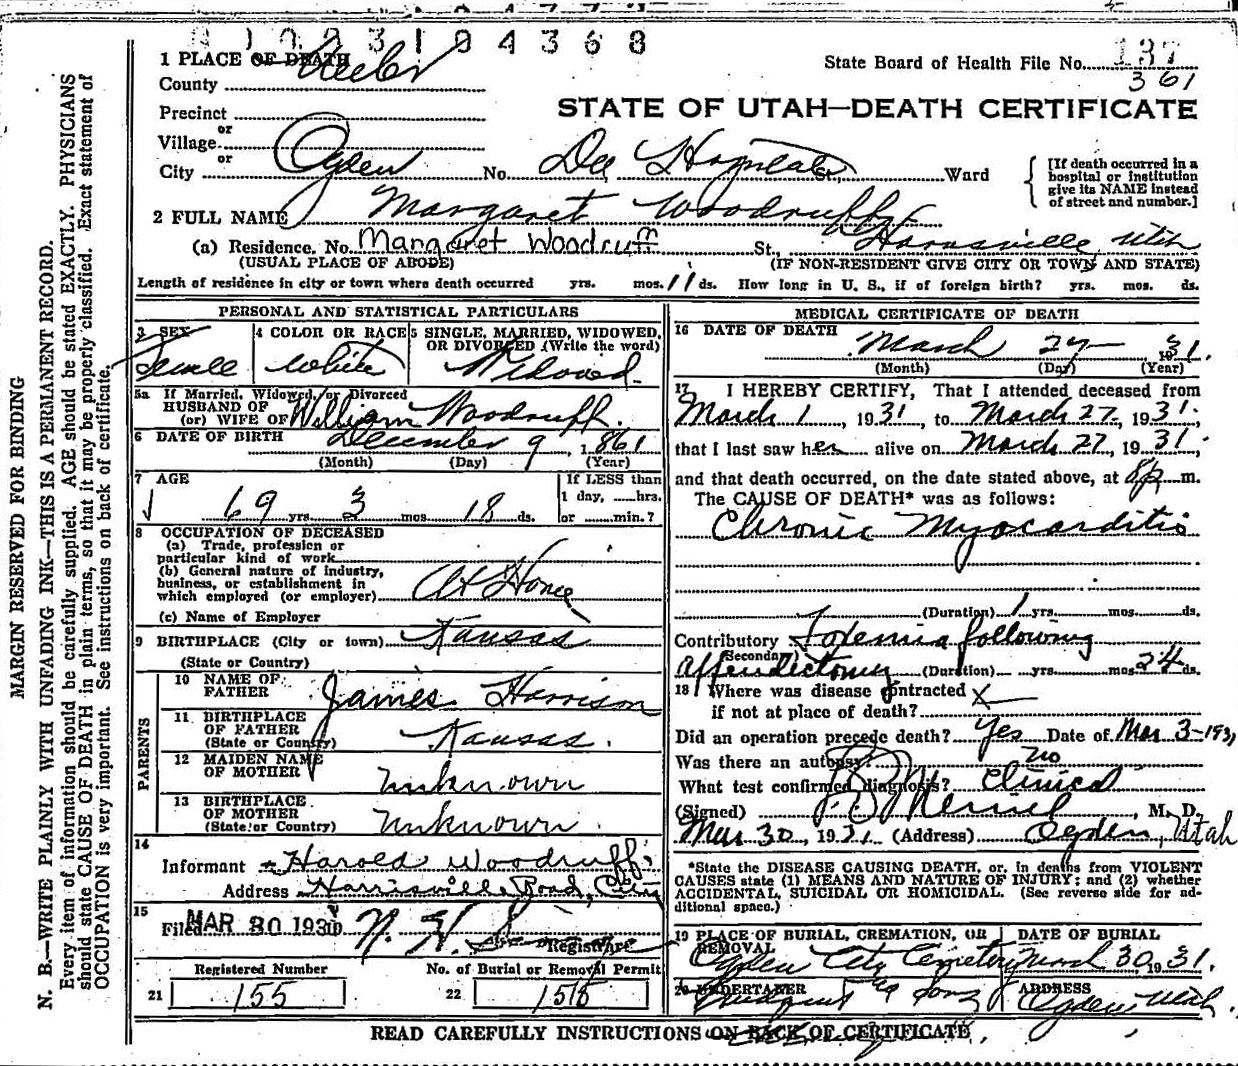 1023104368
1 PLACE OF DEATH
County Weeber
State Board of Health File No. 137
361
STATE OF UTAH—DEATH CERTIFICATE
Precinct
or
Village
or
City Ogden No. Dee Hospital St., Ward
[If death occurred in a
hospital or institution
give its NAME instead
of street and number.]
2 FULL NAME Margaret Woodruff
(a) Residence. No. Margaret Woodruff St., Harrisville Utah
(USUAL PLACE OF ABODE) (IF NON-RESIDENT GIVE CITY OR TOWN AND STATE)
Length of residence in city or town where death occurred yrs. mos. 11 ds. How long in U. S., if of foreign birth? yrs. mos. ds.
PERSONAL AND STATISTICAL PARTICULARS
3 SEX 4 COLOR OR RACE 5 SINGLE, MARRIED, WIDOWED,
OR DIVORCED (Write the word)
Female White Widowed
5a If Married, Widowed, or Divorced
HUSBAND OF
(or) WIFE OF William Woodruff
6 DATE OF BIRTH December 9, 1861
(Month) (Day) (Year)
7 AGE If LESS than
1 day, ......hrs.
69 yrs. 3 mos. 18 ds. or ........min.?
8 OCCUPATION OF DECEASED
(a) Trade, profession or
particular kind of work
(b) General nature of industry,
business, or establishment in
which employed (or employer) At Home
(c) Name of Employer
9 BIRTHPLACE (City or town) Kansas
(State or Country)
PARENTS
10 NAME OF
FATHER James Harrison
11 BIRTHPLACE
OF FATHER
(State or Country) Kansas.
12 MAIDEN NAME
OF MOTHER Unknown
13 BIRTHPLACE
OF MOTHER
(State or Country) Unknown.
14
Informant Harold Woodruff
Address Harrisville Road, City
15
Filed MAR 30 193 N. H.
Registrar
Registered Number No. of Burial or Removal Permit
21 155 22 158
MEDICAL CERTIFICATE OF DEATH
16 DATE OF DEATH
March 27 1931.
(Month) (Day) (Year)
17 I HEREBY CERTIFY, That I attended deceased from
March 1, 1931 to March 27, 1931.
that I last saw her alive on March 27, 1931.
and that death occurred, on the date stated above, at 8 p m.
The CAUSE OF DEATH* was as follows:
Chronic Myocarditis
(Duration) 1 yrs. mos. ds.
Contributory Toxemia following
(Secondary)
Appendectomy (Duration) yrs. mos. 24 ds.
18 Where was disease contracted
if not at place of death? X
Did an operation precede death? Yes Date of Mar 3-1931
Was there an autopsy? no
What test confirmed diagnosis? Clinical
(Signed) M. D.
Mar 30, 1931 (Address) Ogden, Utah
*State the DISEASE CAUSING DEATH, or, in deaths from VIOLENT
CAUSES state (1) MEANS AND NATURE OF INJURY; and (2) whether
ACCIDENTAL, SUICIDAL OR HOMICIDAL. (See reverse side for ad-
ditional space.)
19 PLACE OF BURIAL, CREMATION, OR DATE OF BURIAL
REMOVAL
Ogden City Cemetery March 30, 1931.
20 UNDERTAKER ADDRESS
& Sons Ogden Utah.
READ CAREFULLY INSTRUCTIONS ON BACK OF CERTIFICATE
MARGIN RESERVED FOR BINDING
N. B.—WRITE PLAINLY WITH UNFADING INK—THIS IS A PERMANENT RECORD.
Every item of information should be carefully supplied. AGE should be stated EXACTLY. PHYSICIANS
should state CAUSE OF DEATH in plain terms, so that it may be properly classified. Exact statement of
OCCUPATION is very important. See instructions on back of certificate.